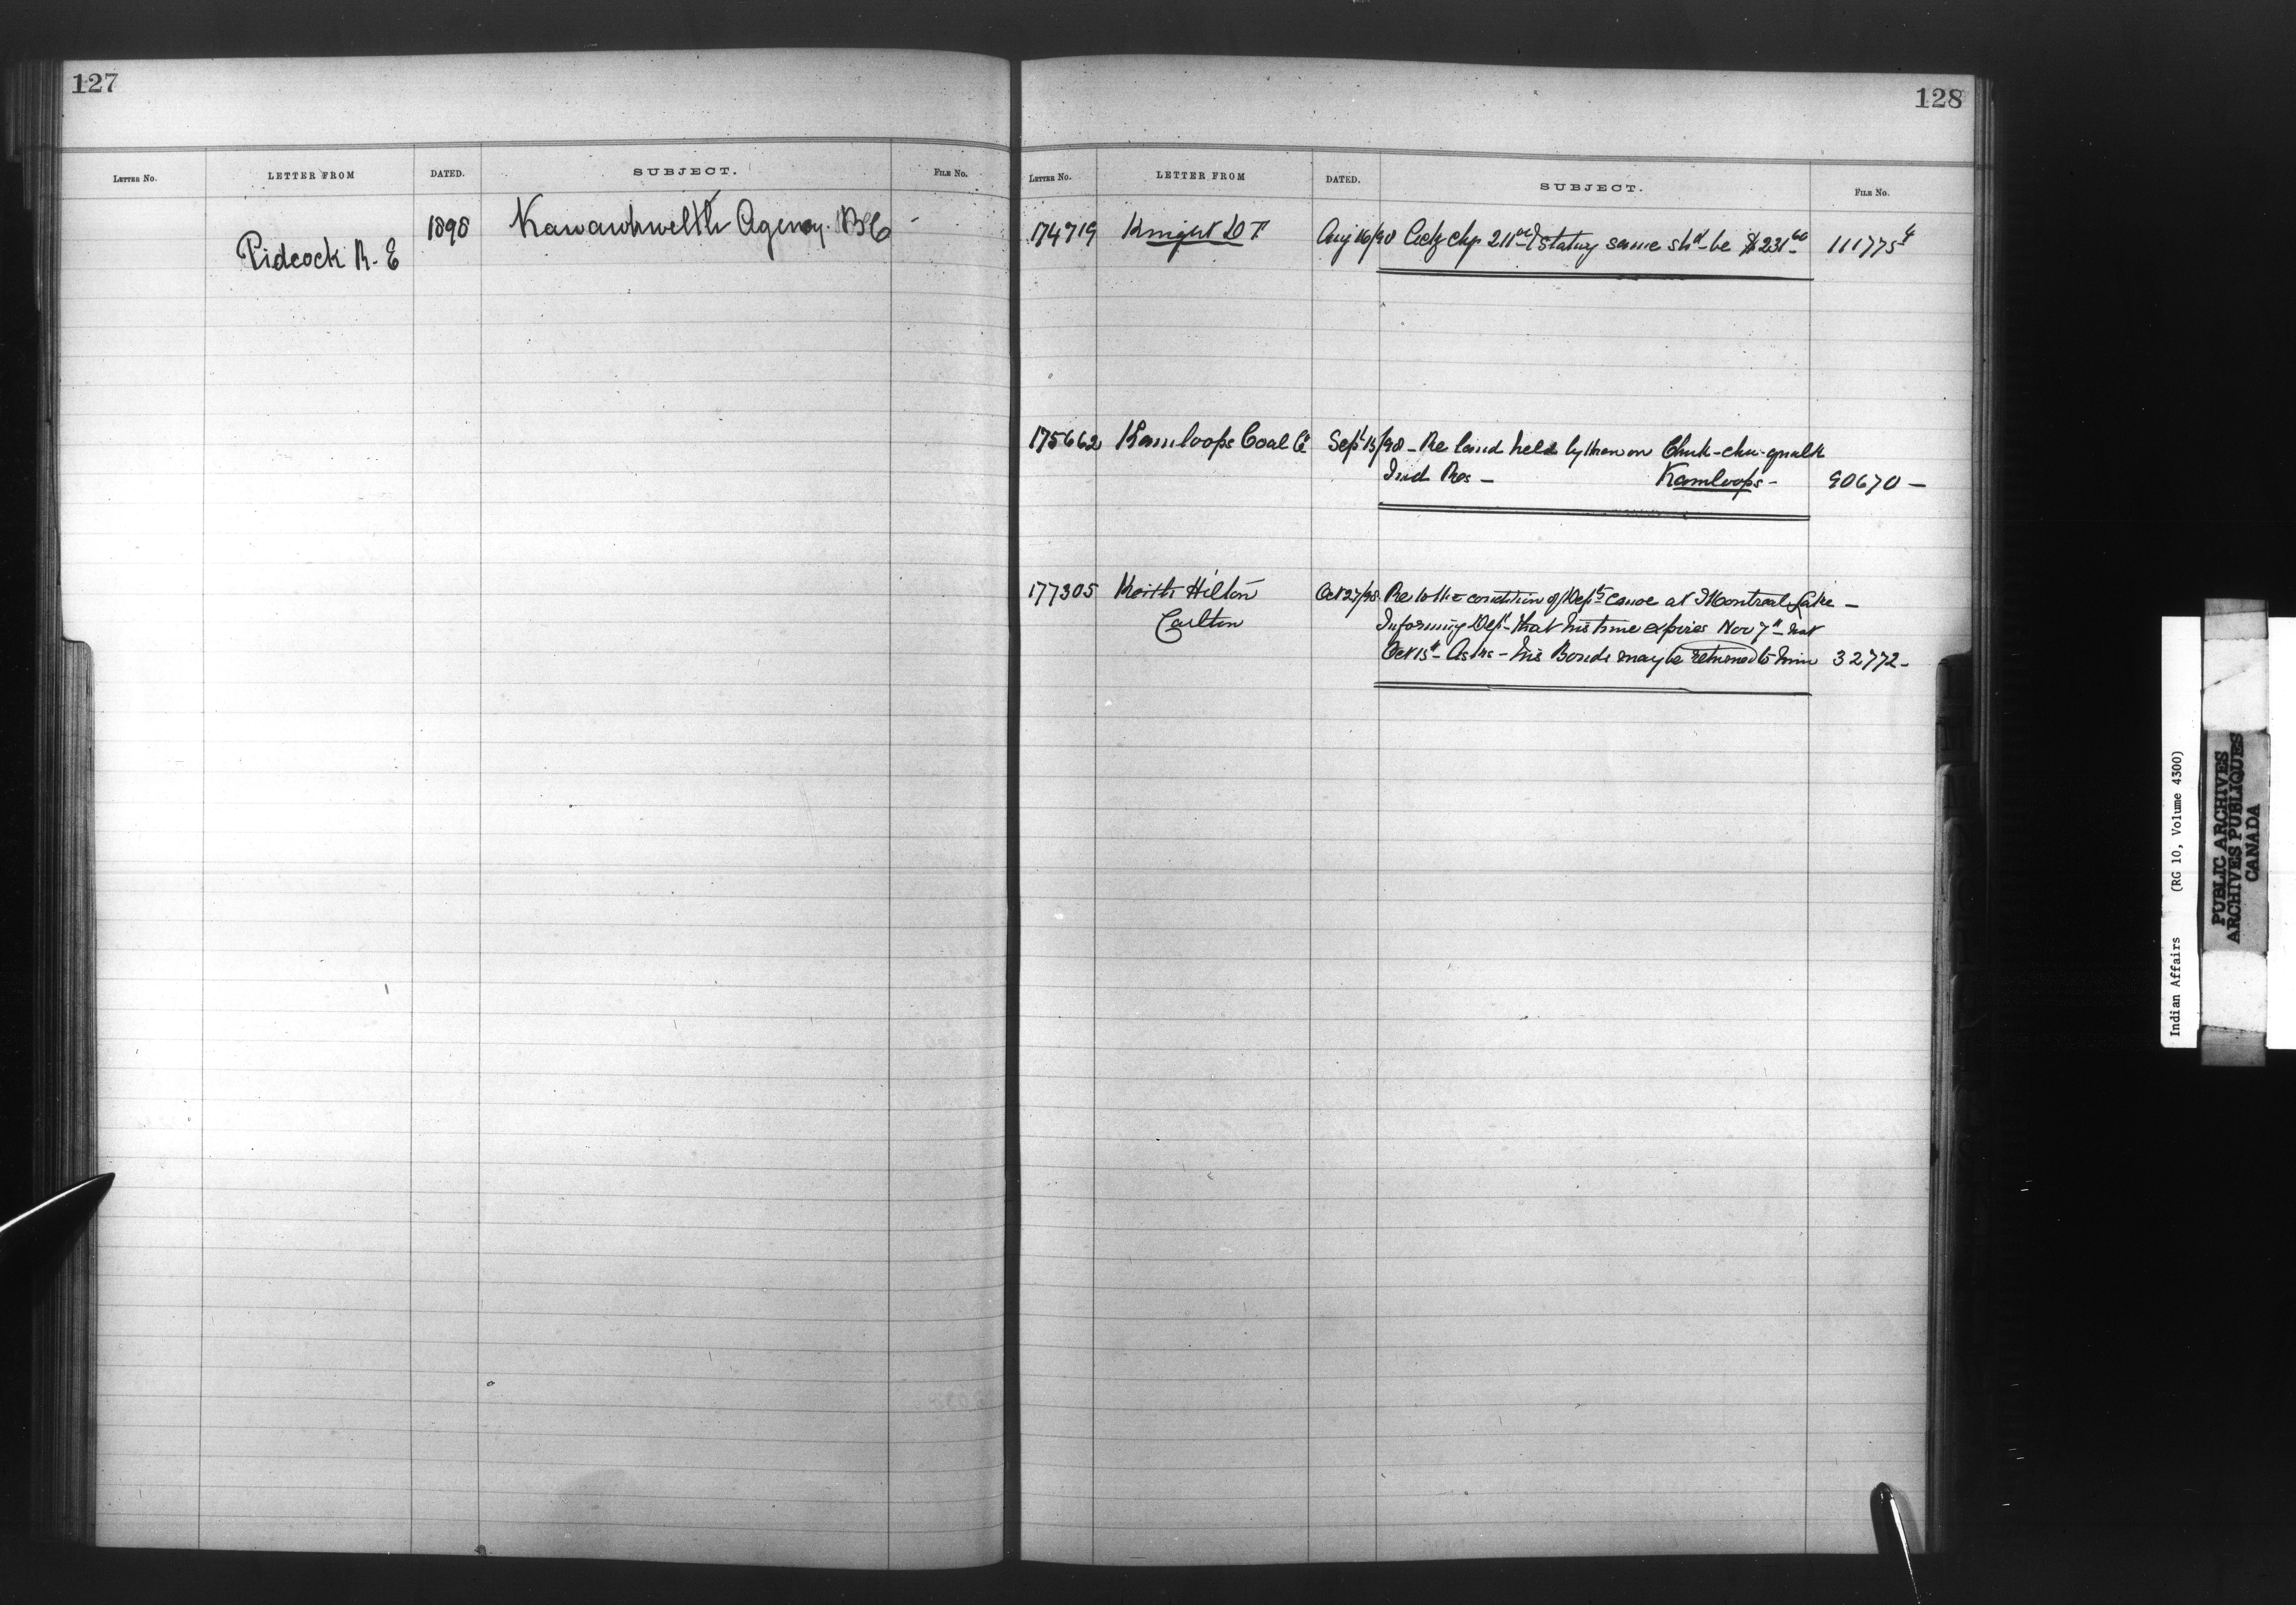 127
LETTER NO. LETTER FROM DATED. SUBJECT. FILE NO.
Pidcock R. E 1898 Kawawkwelth Agency. B C
128
LETTER NO. LETTER FROM DATED. SUBJECT. FILE NO.
174719 Knight D T Aug 16/98 Ackg chq 211 00 & stating same shd be $231 60 111775 4
175662 Kamloops Coal Co Sept 15/98 - Re land held by them on Chuk-chu-qualk
Ind Res - Kamloops - 90670 -
177305 Keith Hilton Oct 27/98 Re to the condition of Depts canoe at Montreal Lake -
Carlton Informing Dept that his time expires Nov 7th not
Oct 15th - Asks - his Bonds may be returned to him 32772 -
Indian Affairs (RG 10, Volume 4300)
PUBLIC ARCHIVES
ARCHIVES PUBLIQUES
CANADA